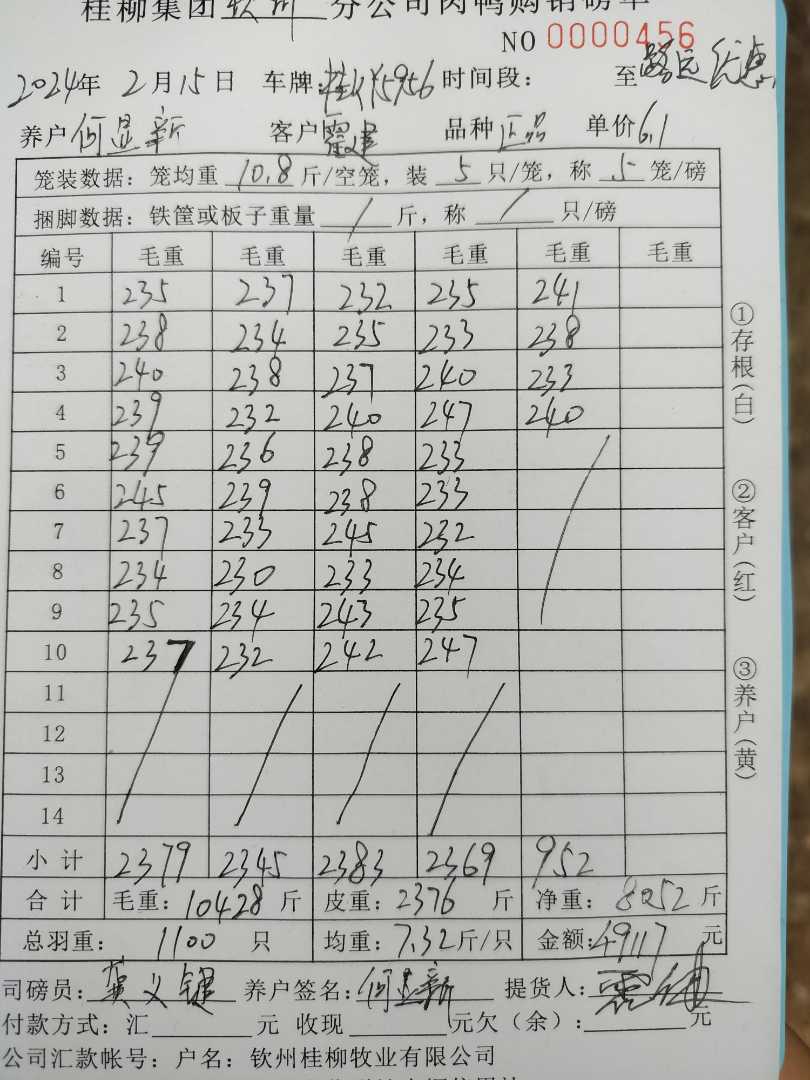 桂柳集团 钦州 分公司肉鸭购销磅单
NO 0000456
2024年 2月15日 车牌:桂 5956 时间段: 至 路远优惠
养户 何显新 客户 霍建 品种 正品 单价 6.1
笼装数据：笼均重 10.8 斤/空笼，装 5 只/笼，称 5 笼/磅
捆脚数据：铁筐或板子重量 / 斤，称 / 只/磅
编号 毛重 毛重 毛重 毛重 毛重 毛重
1 235 237 232 235 241
2 238 234 235 233 238
3 240 238 237 240 233
4 239 232 240 247 240
5 239 236 238 233
6 245 239 238 233
7 237 233 245 232
8 234 230 233 234
9 235 234 243 235
10 237 232 242 247
11
12
13
14
小计 2379 2345 2383 2369 952
合计 毛重：10428 斤 皮重：2376 斤 净重：8052 斤
总羽重： 1100 只 均重：7.32斤/只 金额：49117 元
司磅员：龚义键 养户签名：何显新 提货人：
付款方式：汇 元 收现 元欠（余）： 元
公司汇款帐号：户名：钦州桂柳牧业有限公司
①存根(白)
②客户(红)
③养户(黄)